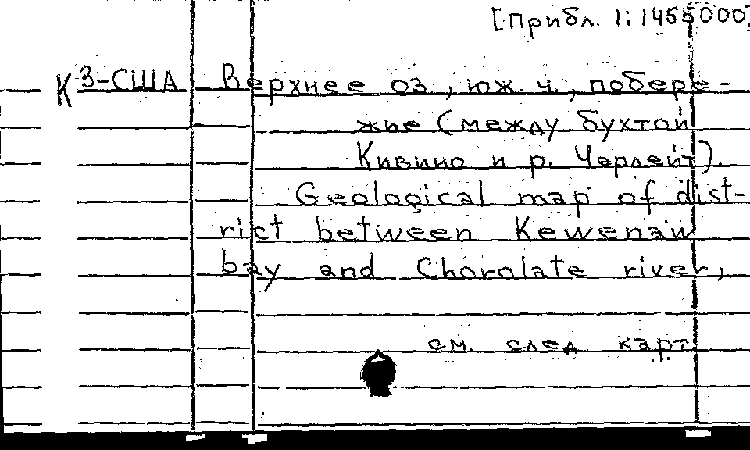 [Прибл. 1:1455000]
К3-США Верхнее оз., юж. ч., побере-
жье (между бухтой
Кивино и р. Чарлейт).
Geological map of dist-
rict between Kewenaw
bay and Chorolate river,
см. след карт